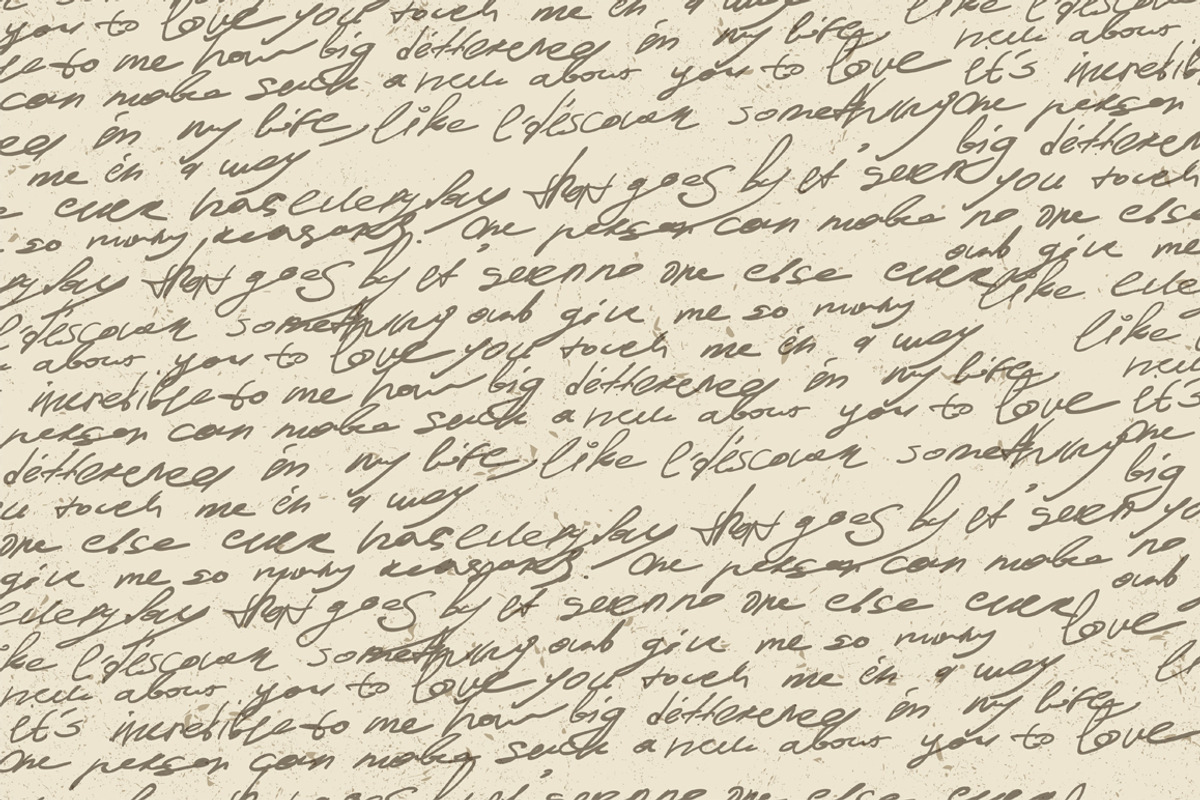 you to love you touch me in a way like I discover
to me how big difference in my life new about
can make such a new about you to love It's incredible
in my life, like I discover something One person
me in a way big difference
ever has everyday that goes by it' seem you touch
so many reasons. One person can make no one else
everyday that goes by it' seem no one else ever and give me
I discover something and give me so many like
about you to love you touch me in a way like
incredible to me how big difference in my life new
person can make such a new about you to love It's
difference in my life, like I discover something One
you touch me in a way big
one else ever has everyday that goes by it' seem
give me so many reasons. One person can make no
everyday that goes by it seem no one else ever and
like I discover something and give me so many love
new about you to love you touch me in a way
It's incredible to me how big difference in my life
One person can make such a new about you to love